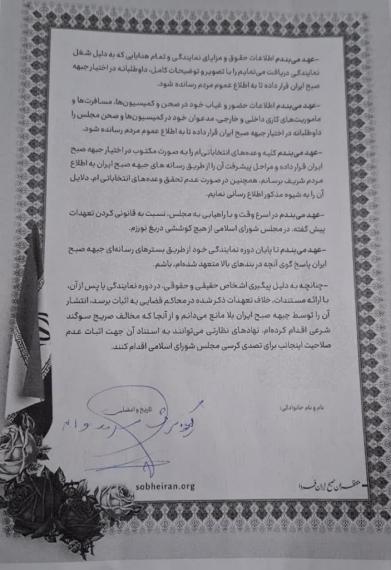 -عهد می‌بندم اطلاعات حقوق و مزایای نمایندگی و تمام هدایایی که به دلیل شغل
نمایندگی دریافت می‌نمایم را با تصویر و توضیحات کامل، داوطلبانه در اختیار جبهه
صبح ایران قرار داده تا به اطلاع عموم مردم رسانده شود.
-عهد می‌بندم اطلاعات حضور و غیاب خود در صحن و کمیسیون‌ها، مسافرت‌ها و
ماموریت‌های کاری داخلی و خارجی، مدعوان خود در کمیسیون‌ها و صحن مجلس را
داوطلبانه در اختیار جبهه صبح ایران قرار داده تا به اطلاع عموم مردم رسانده شود.
-عهد می‌بندم کلیه وعده‌های انتخاباتی‌ام را به صورت مکتوب در اختیار جبهه صبح
ایران قرار داده و مراحل پیشرفت آن را از طریق رسانه های جبهه صبح ایران به اطلاع
مردم شریف برسانم. همچنین در صورت عدم تحقق وعده‌های انتخاباتی ام، دلایل
آن را به شیوه مذکور اطلاع رسانی نمایم.
-عهد می‌بندم در اسرع وقت و با راهیابی به مجلس، نسبت به قانونی کردن تعهدات
پیش گفته، در مجلس شورای اسلامی از هیچ کوششی دریغ نورزم.
-عهد می‌بندم تا پایان دوره نمایندگی خود از طریق بسترهای رسانه‌ای جبهه صبح
ایران پاسخ گوی آنچه در بندهای بالا متعهد شده‌ام، باشم.
-چنانچه به دلیل پیگیری اشخاص حقیقی و حقوقی، در دوره نمایندگی یا پس از آن،
با ارائه مستندات، خلاف تعهدات ذکر شده در محاکم قضایی به اثبات برسد، انتشار
آن را توسط جبهه صبح ایران بلا مانع می‌دانم و از آنجا که مخالف صریح سوگند
شرعی اقدام کرده‌ام، نهادهای نظارتی می‌توانند به استناد آن جهت اثبات عدم
صلاحیت اینجانب برای تصدی کرسی مجلس شورای اسلامی اقدام کنند.
نام و نام خانوادگی: تاریخ و امضاء:
sobheiran.org